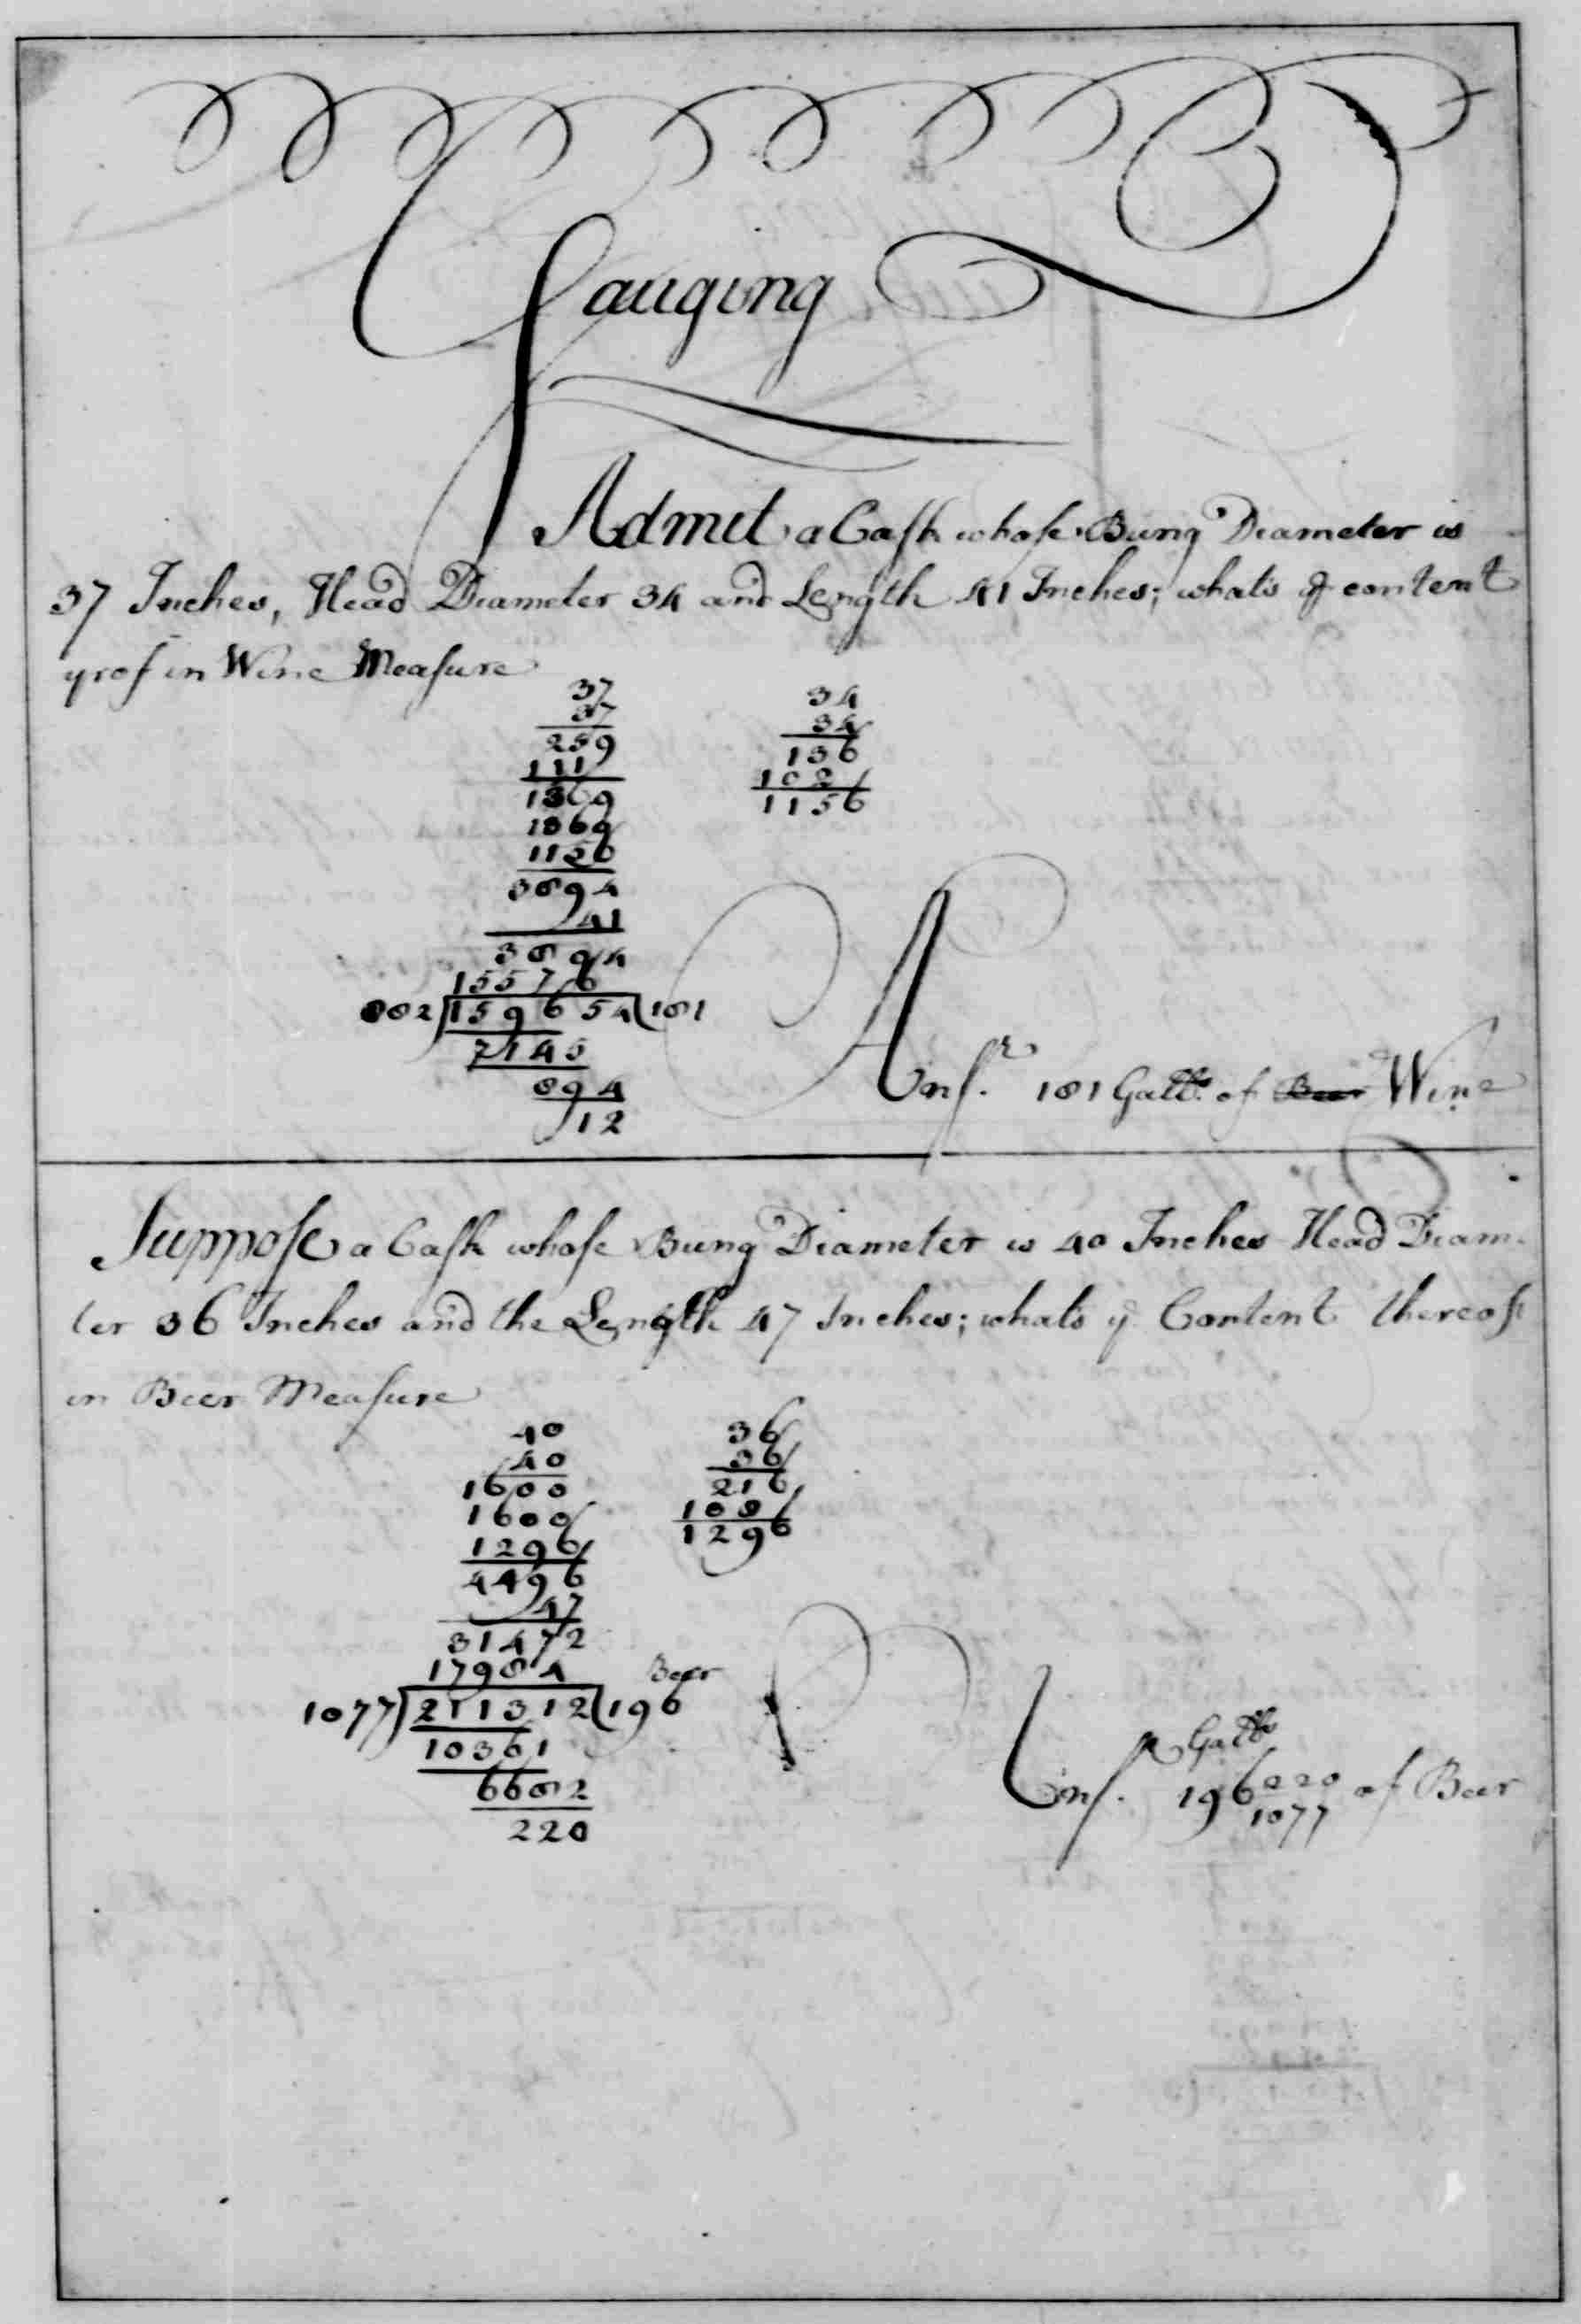 Gauging
Admit a Cask whose Bung Diameter is
37 Inches, Head Diameter 34 and Length 41 Inches; whats ye content
yrof in Wine Measure
37
37
259
111
1369
1369
1156
3894
41
3894
15576
882)159654(181
7145
894
12
34
34
136
102
1156
Ansr. 181 Galls. of Beer Wine
Suppose a Cask whose Bung Diameter is 40 Inches Head Diam-
ter 36 Inches and the Length 47 Inches; whats ye Content thereof
in Beer Measure
40
40
1600
1600
1296
4496
47
31472
17984
Beer
1077)211312(196
10361
6682
220
36
36
216
108
1296
Ansr. 196 220/1077 Galls of Beer